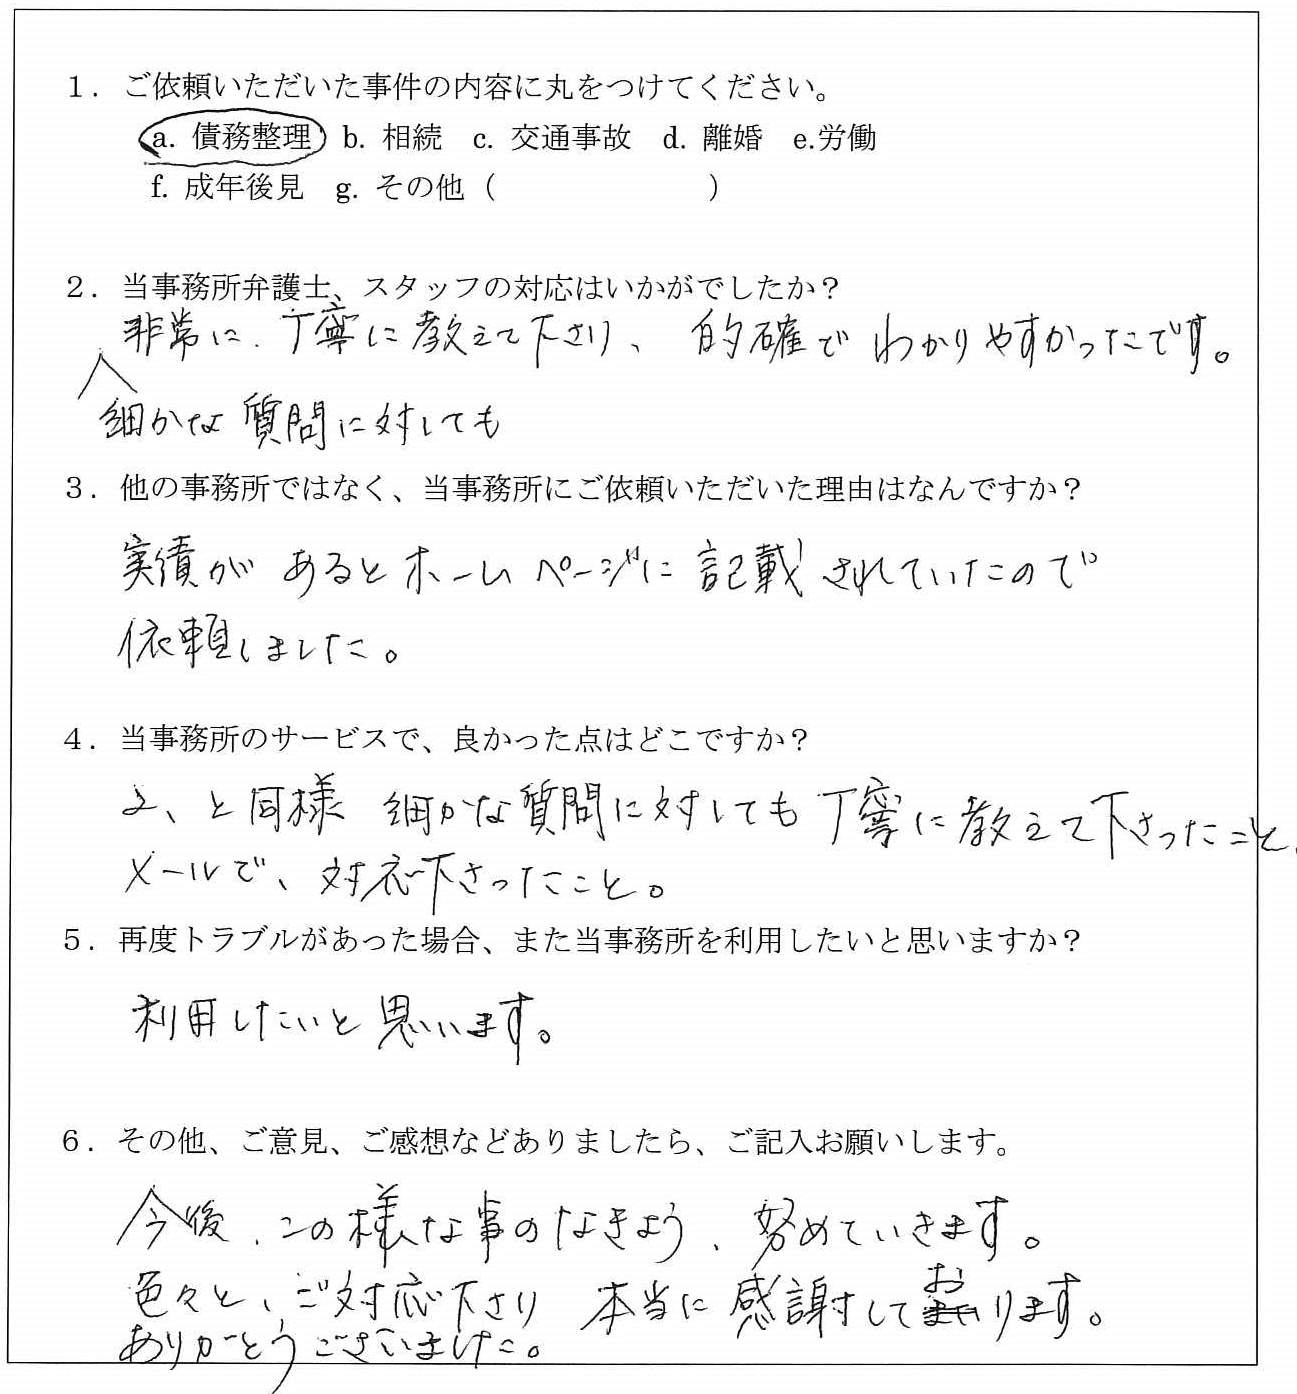 1. ご依頼いただいた事件の内容に丸をつけてください。
a. 債務整理 b. 相続 c. 交通事故 d. 離婚 e.労働
f. 成年後見 g. その他 ( )
2. 当事務所弁護士、スタッフの対応はいかがでしたか?
非常に、丁寧に教えて下さり、的確でわかりやすかったです。
細かな質問に対しても
3. 他の事務所ではなく、当事務所にご依頼いただいた理由はなんですか?
実績があるとホームページに記載されていたので
依頼しました。
4. 当事務所のサービスで、良かった点はどこですか?
2、と同様 細かな質問に対しても丁寧に教えて下さったこと、
メールで、対応下さったこと。
5. 再度トラブルがあった場合、また当事務所を利用したいと思いますか?
利用したいと思います。
6. その他、ご意見、ご感想などありましたら、ご記入お願いします。
今後、この様な事のなきよう、努めていきます。
色々と、ご対応下さり 本当に感謝しております。
ありがとうございました。